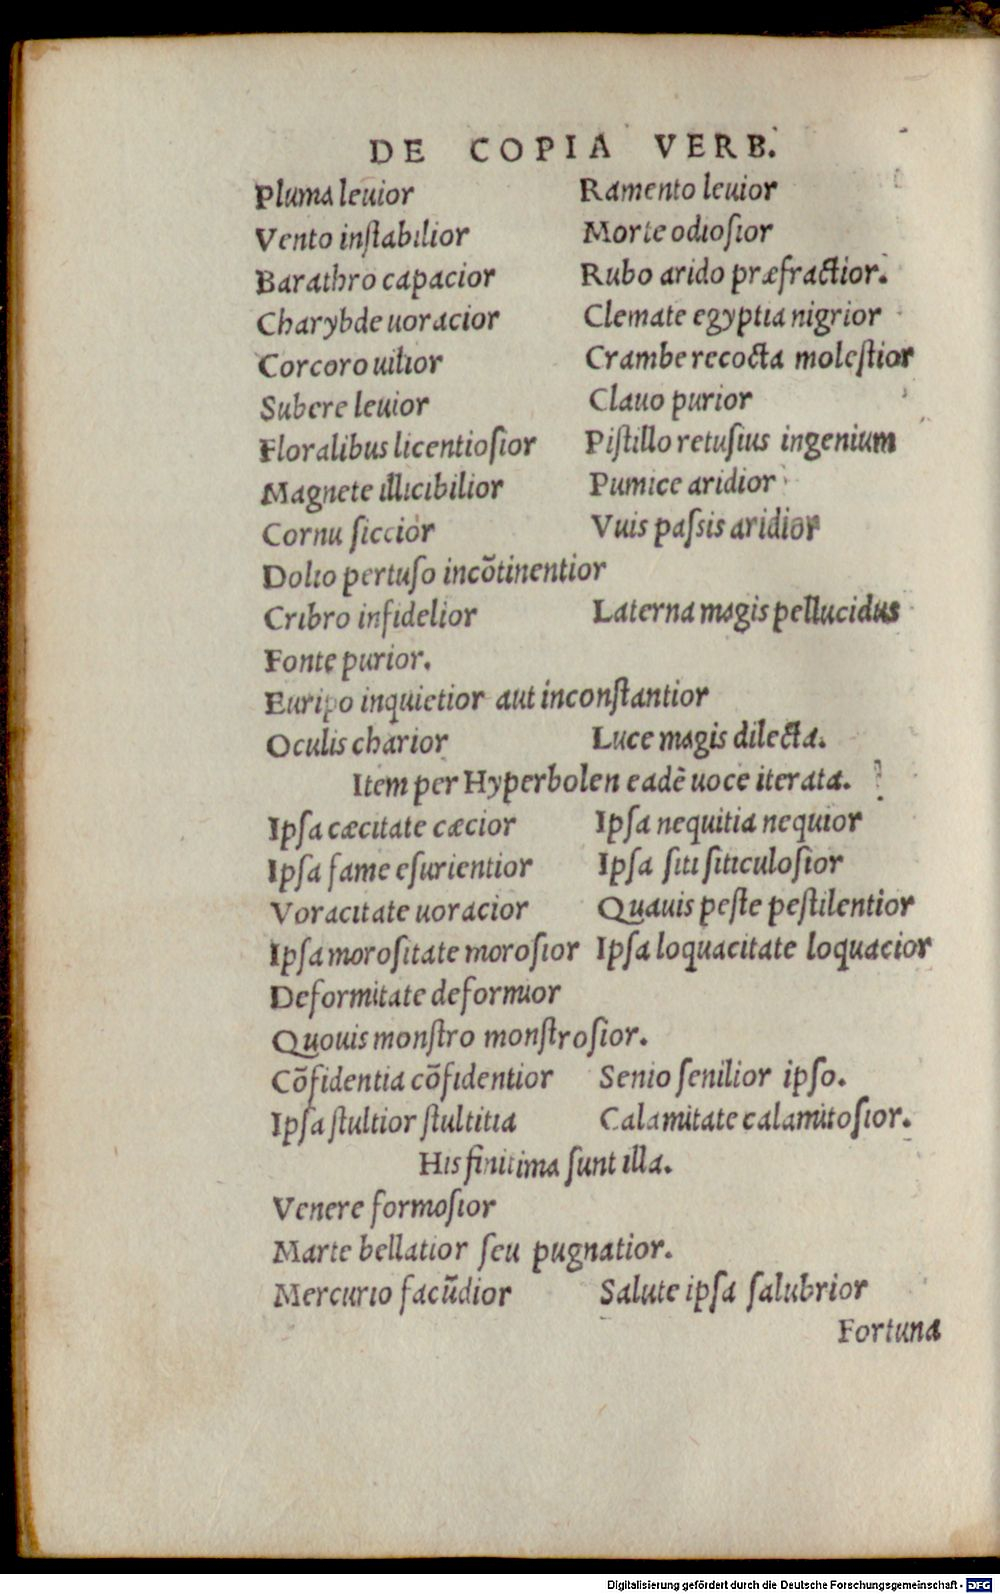 DE COPIA VERB.
Pluma leuior Ramento leuior
Vento inſtabilior Morte odioſior
Barathro capacior Rubo arido præfractior.
Charybde uoracior Clemate egyptia nigrior
Corcoro uilior Crambe recocta moleſtior
Subere leuior Clauo purior
Floralibus licentioſior Piſtillo retuſius ingenium
Magnete illicibilior Pumice aridior
Cornu ſiccior Vuis paſsis aridior
Dolio pertuſo incõtinentior
Cribro infidelior Laterna magis pellucidus
Fonte purior.
Euripo inquietior aut inconſtantior
Oculis charior Luce magis dilecta.
Item per Hyperbolen eadẽ uoce iterata.
Ipſa cæcitate cæcior Ipſa nequitia nequior
Ipſa fame eſurientior Ipſa ſiti ſiticuloſior
Voracitate uoracior Quauis peſte peſtilentior
Ipſa moroſitate moroſior Ipſa loquacitate loquacior
Deformitate deformior
Quouis monſtro monſtroſior.
Cõfidentia cõfidentior Senio ſenilior ipſo.
Ipſa ſtultior ſtultitia Calamitate calamitoſior.
His finitima ſunt illa.
Venere formoſior
Marte bellatior ſeu pugnatior.
Mercurio facũdior Salute ipſa ſalubrior
Fortuna
Digitalisierung gefördert durch die Deutsche Forschungsgemeinschaft - DFG